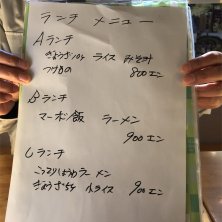 ランチ メニュー
Aランチ
ぎょうざ10ヶ ライス みそ汁
つけもの 800エン
Bランチ
マーボ飯 ラーメン
900エン
Cランチ
こってりしょうゆラーメン
ぎょうざ5ヶ 小ライス 900エン